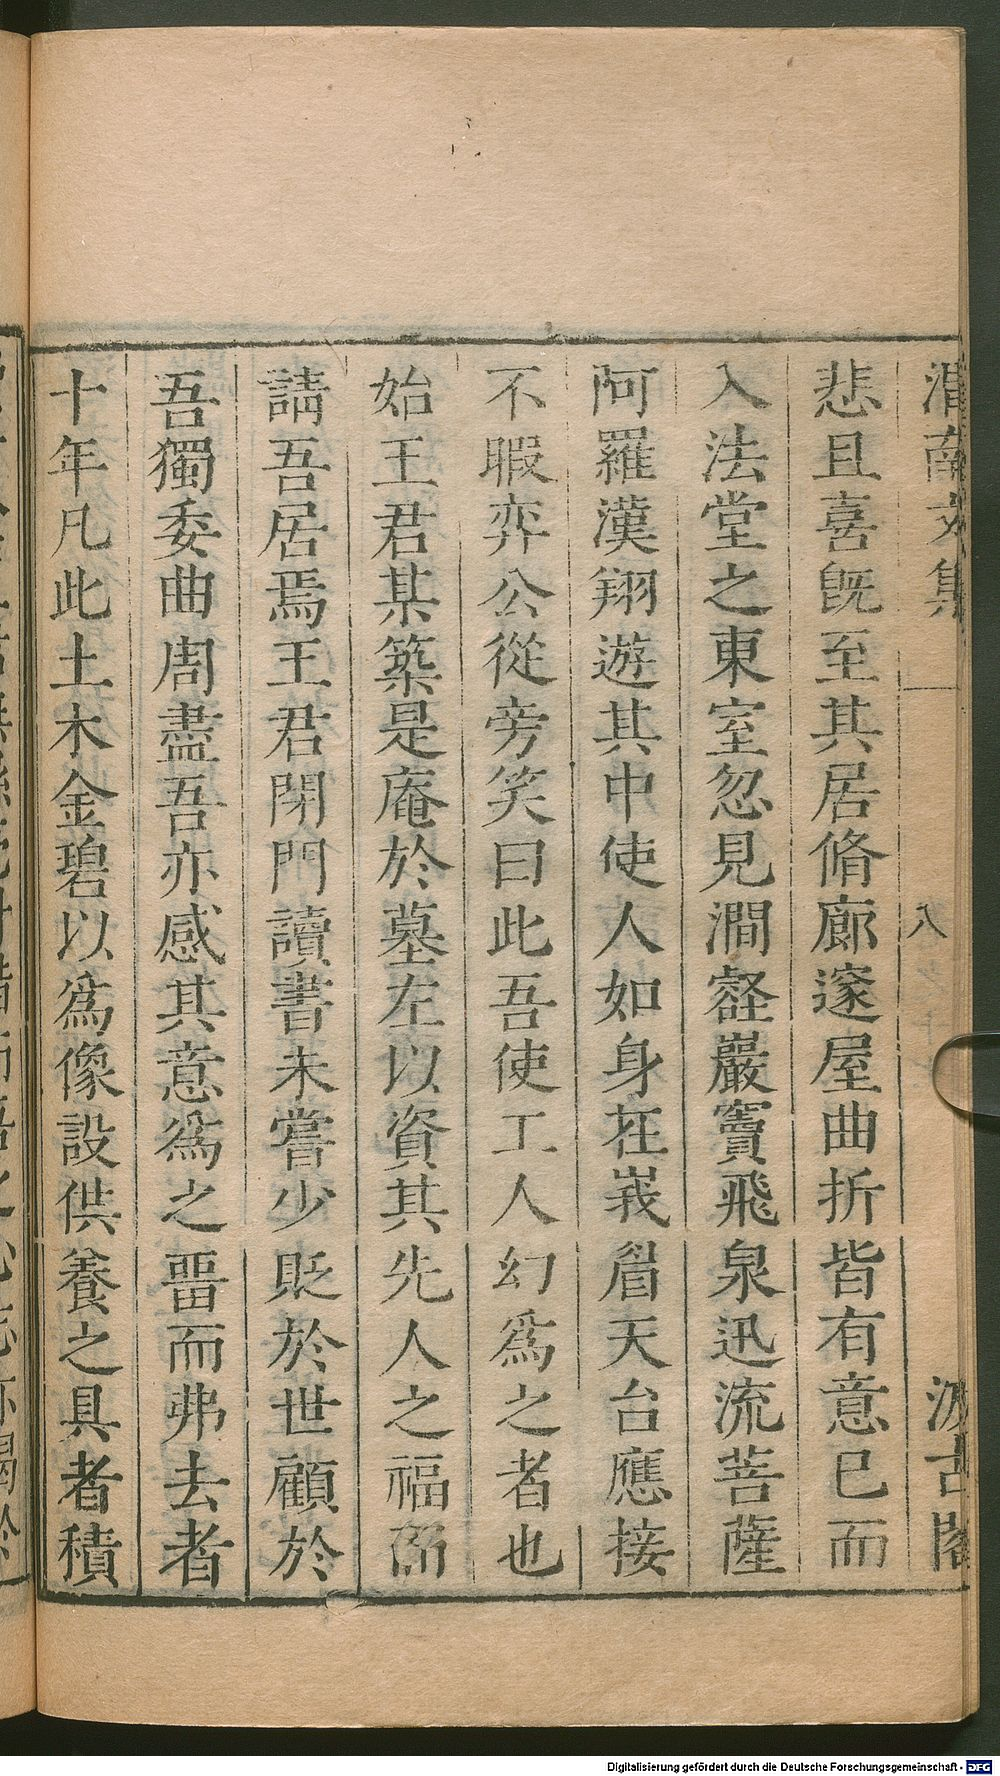 渭南文集
八
汲古閣
悲且喜旣至其居脩廊邃屋曲折皆有意已而
入法堂之東室忽見澗壑巖竇飛泉迅流菩薩
阿羅漢翔遊其中使人如身在峩眉天台應接
不暇弈公從旁笑曰此吾使工人幻爲之者也
始王君某築是庵於墓左以資其先人之福而
請吾居焉王君閉門讀書未嘗少貶於世顧於
吾獨委曲周盡吾亦感其意爲之畱而弗去者
十年凡此土木金碧以爲像設供養之具者積
Digitalisierung gefördert durch die Deutsche Forschungsgemeinschaft - DFG